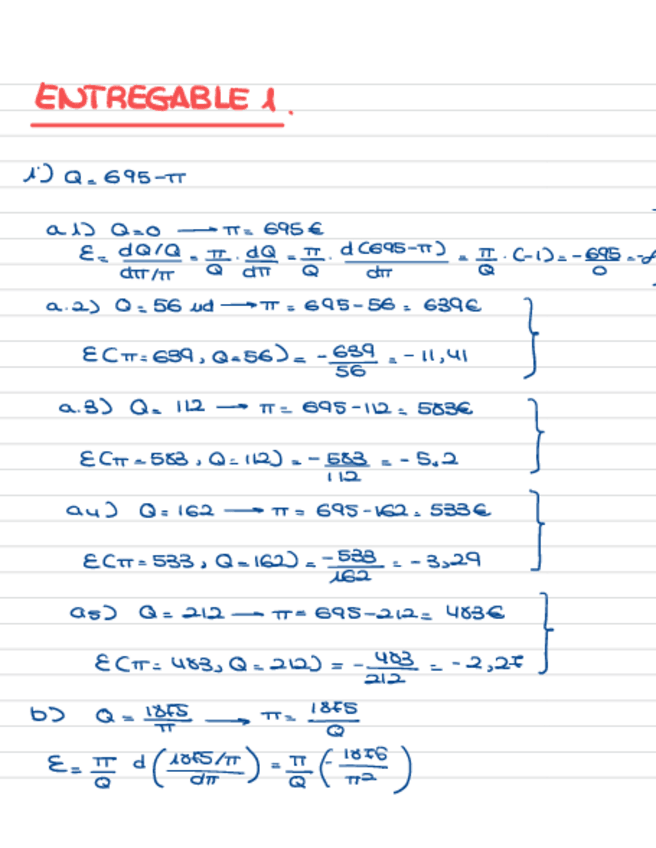 ENTREGABLE 1.
1º) Q = 695-π
a1) Q=0 → π = 695€
ε = dQ/Q / dπ/π = π/Q · dQ/dπ = π/Q · d(695-π)/dπ = π/Q · (-1) = -695/0 =
a.2) Q = 56 ud → π = 695-56 = 639€
ε(π=639, Q=56) = -639/56 = -11,41
a.3) Q = 112 → π = 695-112 = 583€
ε(π=583, Q=112) = -583/112 = -5.2
a4) Q = 162 → π = 695-162 = 533€
ε(π=533, Q=162) = -533/162 = -3,29
a5) Q = 212 → π = 695-212 = 483€
ε(π=483, Q=212) = -483/212 = -2,27
b) Q = 1875/π → π = 1875/Q
ε = π/Q d(1875/π / dπ) = π/Q (-1876/π²)